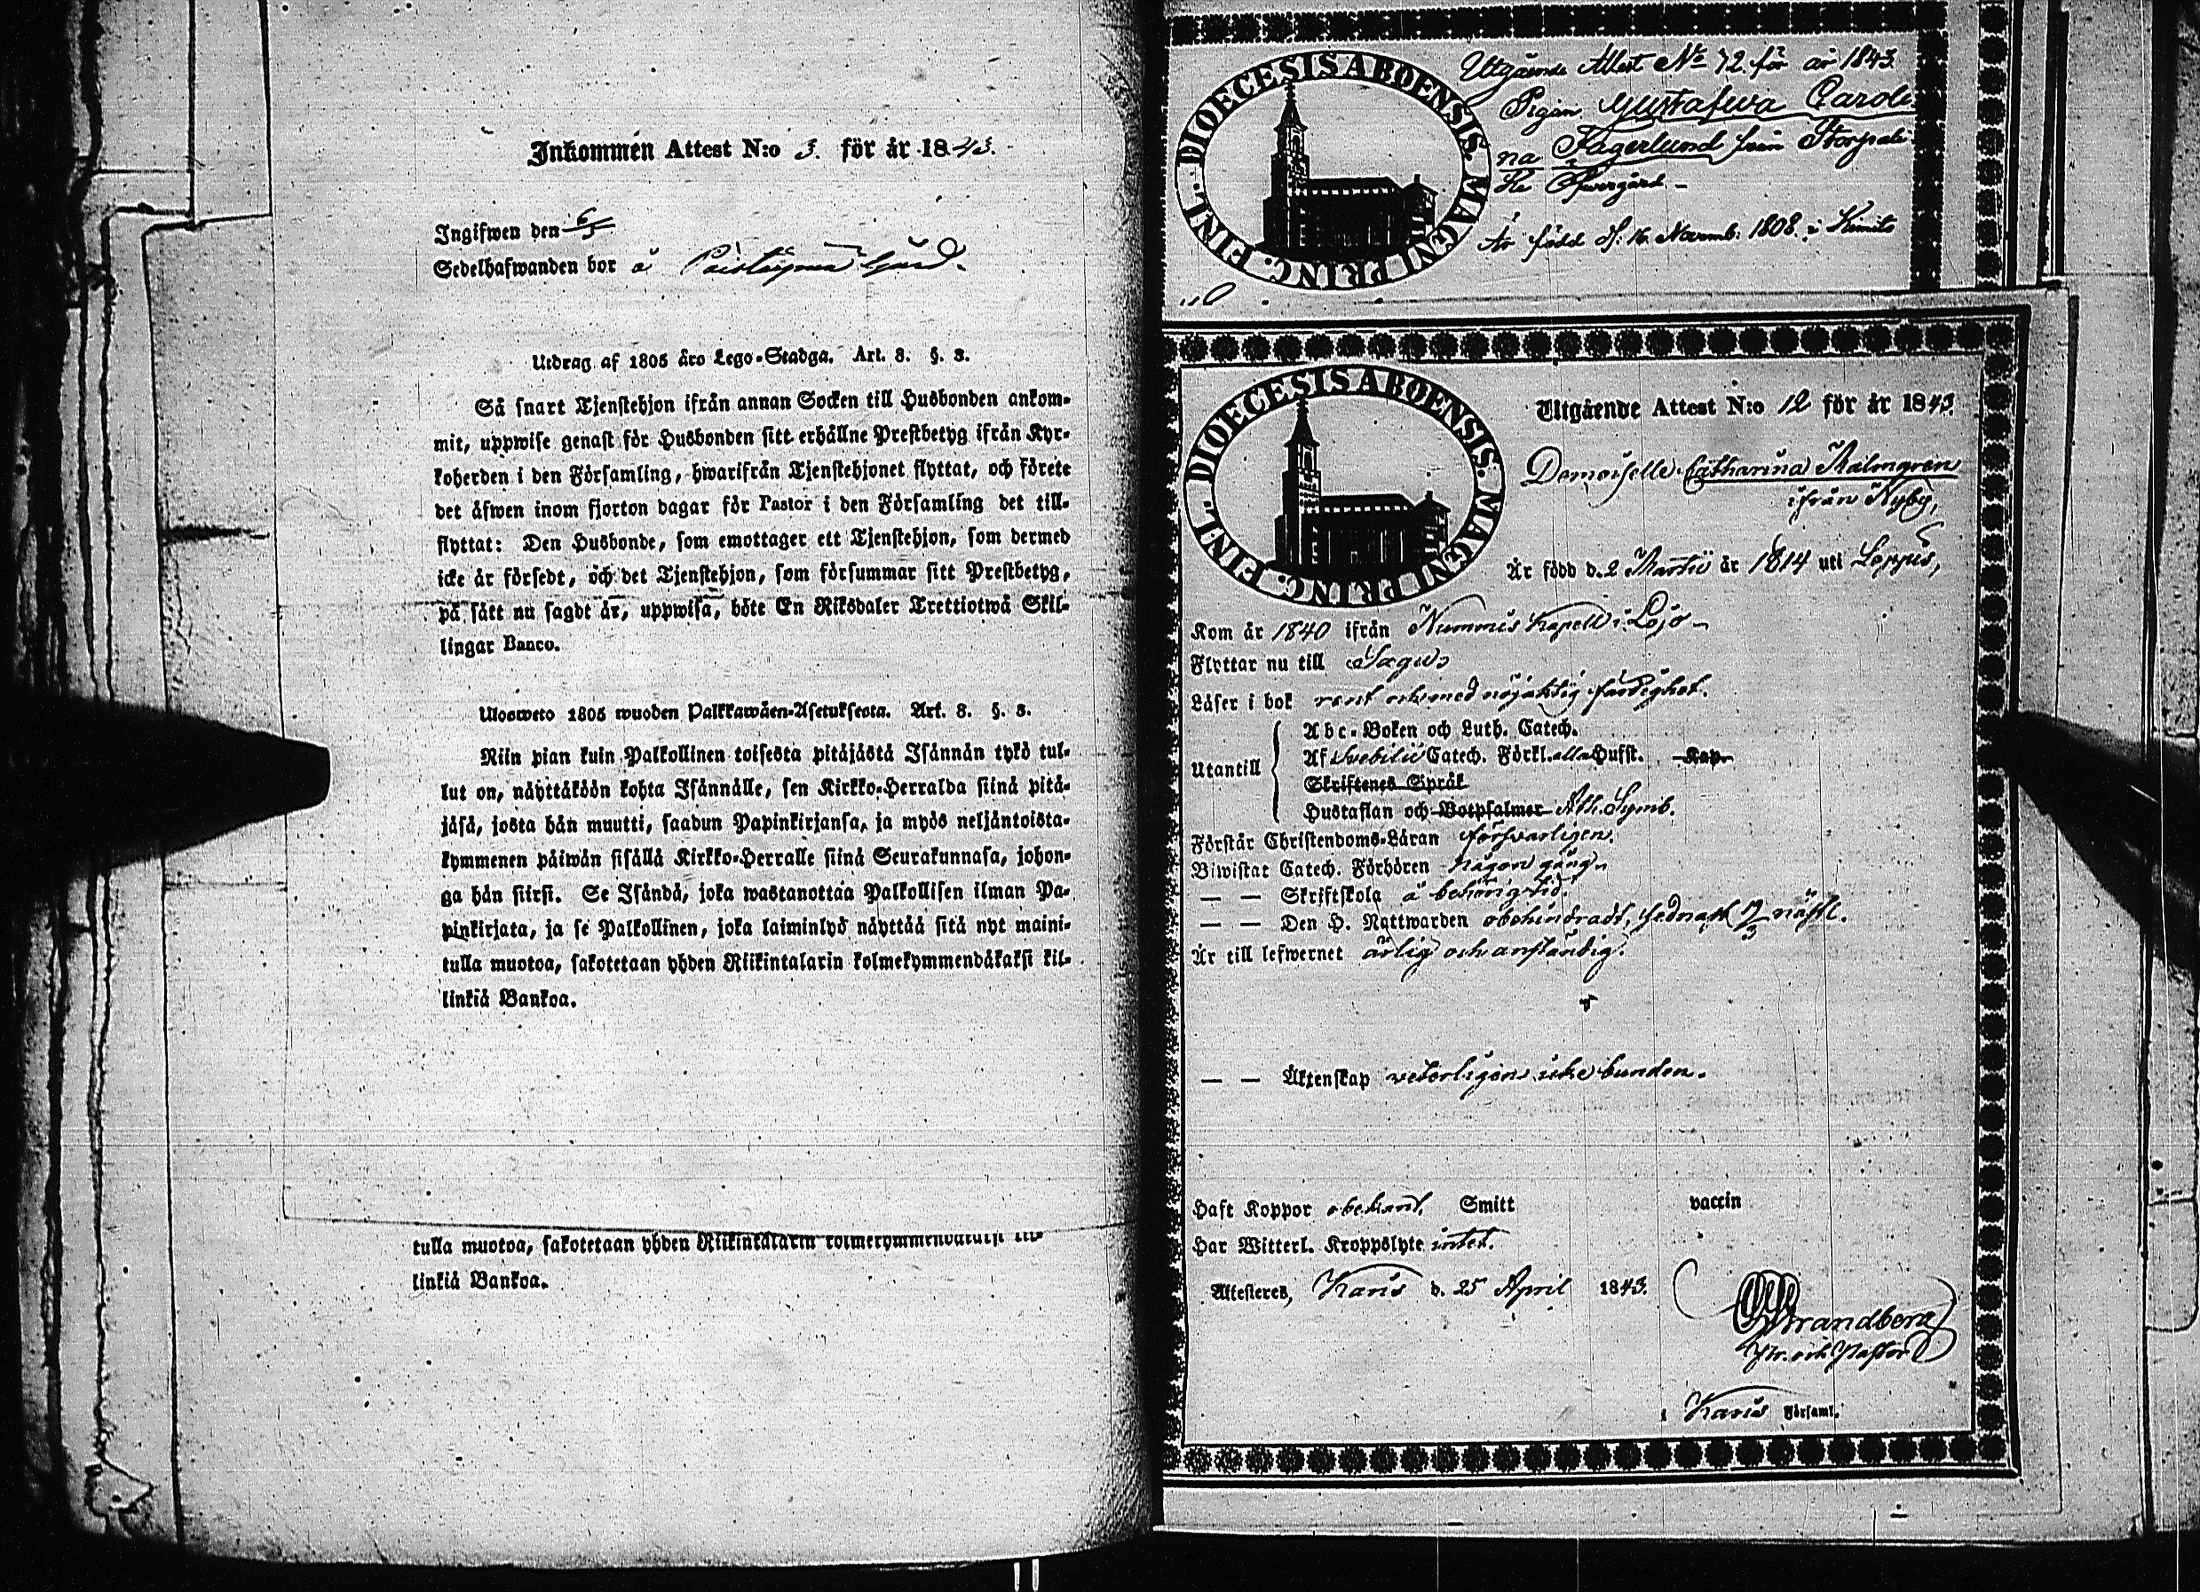 Inkommen Attest N:o 3. för år 1843.
Ingifwen den 6/5
Sedelhafwanden bor å gård.
Utdrag af 1805 års Lego-Stadga. Art. 8. §. 8.
Så snart Tjenstehjon ifrån annan Socken till Husbonden ankom-
mit, uppwise genast för Husbonden sitt erhållne Prestbetyg ifrån Kyr-
koherden i den Församling, hwarifrån Tjenstehjonet flyttat, och förete
det äfwen inom fjorton dagar för Pastor i den Församling det till-
flyttat: Den Husbonde, som emottager ett Tjenstehjon, som dermed
icke är försedt, och det Tjenstehjon, som försummar sitt Prestbetyg,
på sätt nu sagdt är, uppwisa, böte En Riksdaler Trettiotwå Skil-
lingar Banco.
Ulosweto 1805 wuoden Palkkawäen-Asetuksesta. Art. 8. §. 8.
Niin pian kuin Palkollinen toisesta pitäjästä Isännän tykö tul-
lut on, näyttäköön kohta Isännälle, sen Kirkko-Herralda siinä pitä-
jäsä, josta hän muutti, saadun Papinkirjansa, ja myös neljäntoista-
kymmenen päiwän sisällä Kirkko-Herralle siinä Seurakunnasa, johon-
ga hän siirsi. Se Isändä, joka wastanottaa Palkollisen ilman Pa-
pinkirjata, ja se Palkollinen, joka laiminlyö näyttää sitä nyt maini-
tulla muotoa, sakotetaan yhden Riikintalarin kolmekymmendäkaksi kil-
linkiä Bankoa.
tulla muotoa, sakotetaan yhden Riikintalarin kolmekymmendäkaksi kil-
linkiä Bankoa.
DIOECESIS ABOENSIS. MAGNI PRINC. FINL.
Utgående Attest No 72. för år 1843
Pigan Gustafwa Caroli-
na Fagerlund från
Är född d: 16 Novemb: 1808. i Kimito
DIOECESIS ABOENSIS. MAGNI PRINC. FINL.
Utgående Attest N:o 12 för år 1843.
Demoiselle Catharina Malmgren
ifrån Nyby,
Är född d. 2 Martii år 1814 uti
Kom år 1840 ifrån Nummis Kapell i Lojo
Flyttar nu till Sagu
Läser i bok rent och med nöjaktig färdighet.
Utantill
Abc-Boken och Luth. Catech.
Af Svebilii Catech. Förkl. alla Hufst. Kap.
Skriftenes Språk
Hustaflan och Botpsalmer Ath. Symb.
Förstår Christendoms-Läran försvarligen.
Biwistat Catech. Förhören någon gång
— — Skriftskola å behörig tid
— — Den H. Nattwarden obehindradt, sednast 12/3 näſtl.
Är till lefwernet ärlig och anständig.
— — Äktenskap veterligen icke bunden.
Haft Koppor obekant. Smitt vaccin
Har Witterl. Kroppslyte intet.
Attesteres, Karis d. 25 April 1843.
Strandberg
Pr. och Pastor
i Karis Församl.